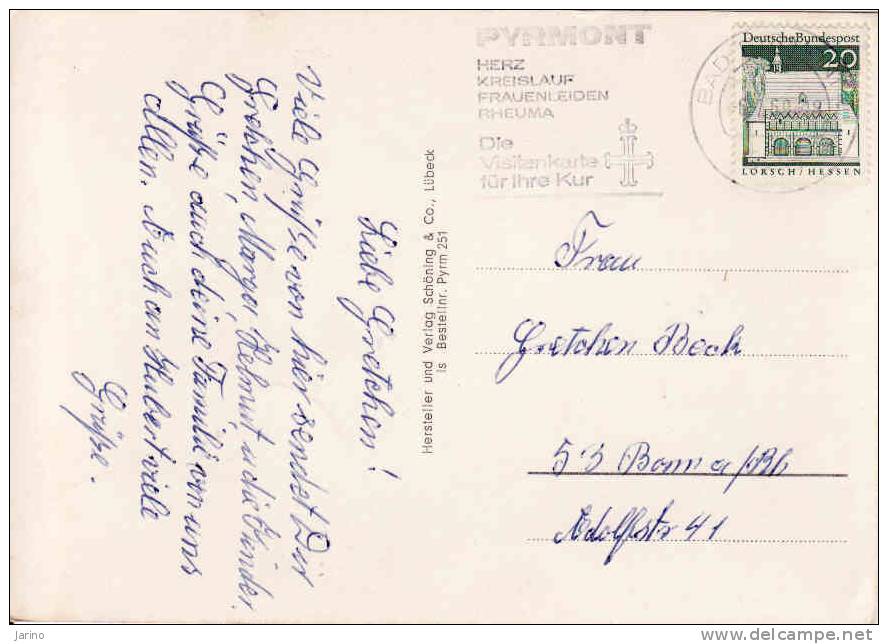 Liebe Gretchen!
Viele Grüße von hier sendet Dir
Gretchen, Marga, Helmut u die Kinder
Grüße auch deine Familie von uns
Allen. Auch an Hubert viele
Grüße.
Hersteller und Verlag Schöning & Co., Lübeck
Is Bestellnr. Pyrm 251
PYRMONT
HERZ
KREISLAUF
FRAUENLEIDEN
RHEUMA
Die
Visitenkarte
für Ihre Kur
BAD
Deutsche Bundespost
20
LORSCH/HESSEN
Frau
Gretchen Beck
53 Bonn a/Rh
Adolfstr 41
Jarino
delcampe.net